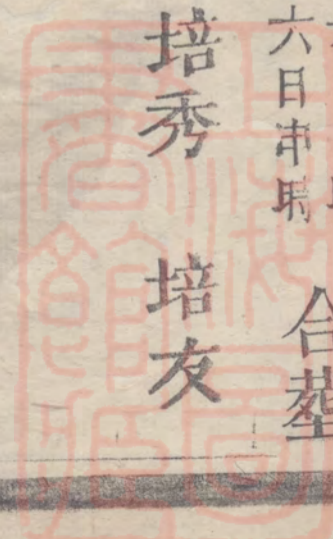 六日申時 合葬
培秀 培友